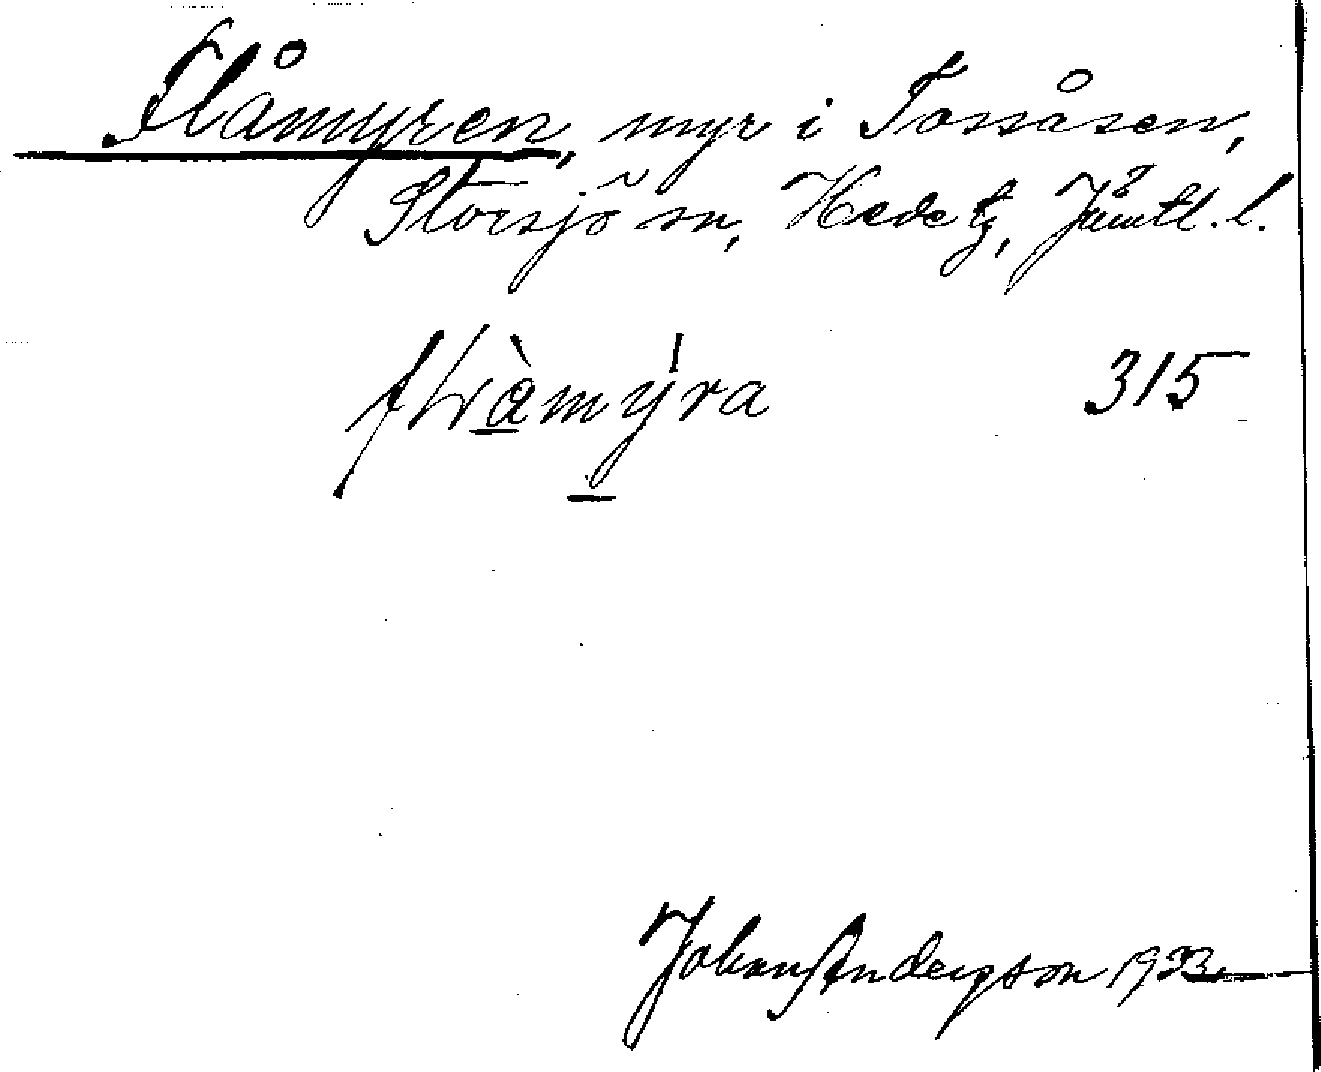 Flåmyren, myr i Tossåsen,
Storsjö sn, Hede tg, Jämtl. l.
flẁåmýra 315
Johan Anderson 1933